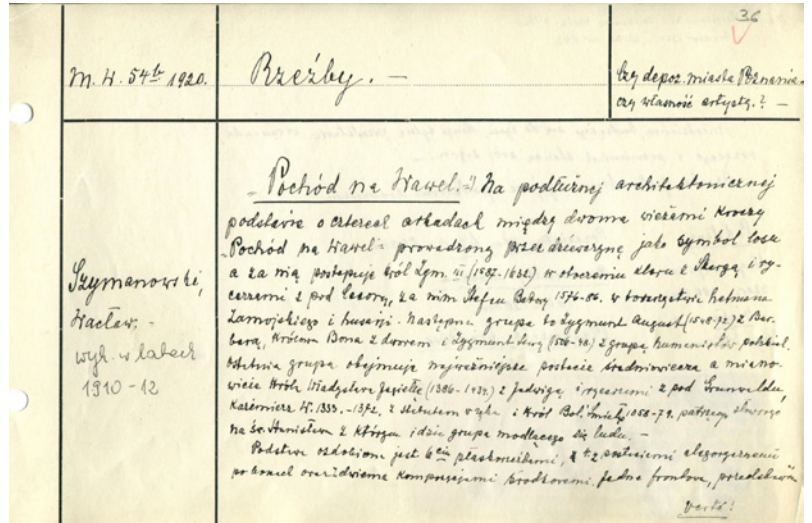 36
M. W. 54b 1920.
Rzeźby. —
Czy depoz. miasta Poznania
czy własność artysty.? —
Szymanowski,
Wacław. -
wyk. w latach
1910 - 12
"Pochód na Wawel." Na podłużnej architektonicznej
podstawie o czterech arkadach między dwoma wieżami kroczy
"Pochód na Wawel" prowadzony przez dziewczynę jako symbol losu
a za nią postępuje król Zygm. III (1587-1632) w otoczeniu kleru z Skargą i ry-
cerzami z pod Cecorę, za nim Stefan Batory 1576-86. w towarzystwie hetmana
Zamojskiego i husarji. Następna grupa to Zygmunt August (1548-72) z Bar-
barą, Królowa Bona z dworem i Zygmunt Stary (1506-48) z grupą humanistów polskich.
Ostatnia grupa obejmuje najważniejsze postacie średniowiecza a miano-
wicie Króla Władysława Jagiełłę (1386-1434.) z Jadwigą i rycerzami z pod Grunwaldu,
Kazimierz W. 1333.-1372, z statutem i Król Bol. Śmiały 1058-79. patrzący
na św. Stanisława z którym idzie grupa modlącego się ludu. —
Podstawa ozdobiona jest płaskorzeźbami, z postaciami alegorycznemi
po bokach oraz dwiema kompozycjami środkowemi. Jedna frontowa, przedstawia
verte!